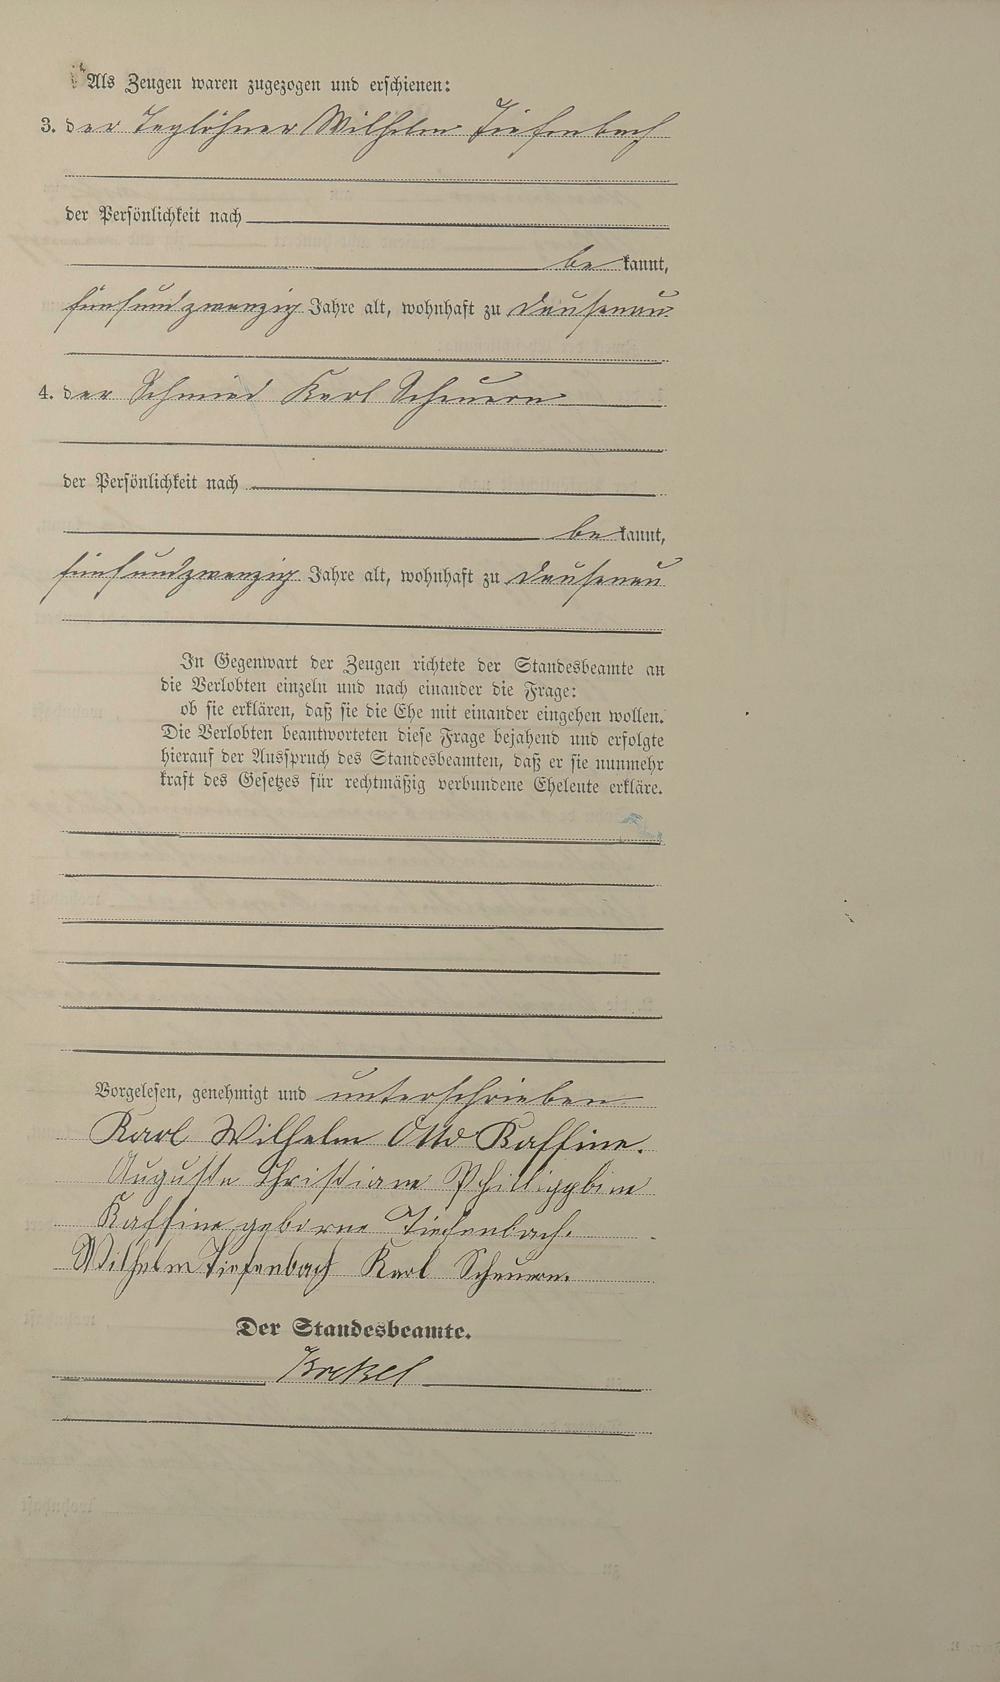 Als Zeugen waren zugezogen und erschienen:
3. der Taglöhner Wilhelm Tiefenbach
der Persönlichkeit nach
be kannt,
fünfundzwanzig Jahre alt, wohnhaft zu Dausenau
4. der Schmied Karl Scheuern
der Persönlichkeit nach
be kannt,
fünfundzwanzig Jahre alt, wohnhaft zu Dausenau
In Gegenwart der Zeugen richtete der Standesbeamte an
die Verlobten einzeln und nach einander die Frage:
ob sie erklären, daß sie die Ehe mit einander eingehen wollen.
Die Verlobten beantworteten diese Frage bejahend und erfolgte
hierauf der Ausspruch des Standesbeamten, daß er sie nunmehr
kraft des Gesetzes für rechtmäßig verbundene Eheleute erkläre.
Vorgelesen, genehmigt und unterschrieben
Karl Wilhelm Otto Kaffine.
Auguste Christiane Philippine
Kaffine geborne Tiefenbach.
Wilhelm Tiefenbach Karl Scheuern.
Der Standesbeamte.